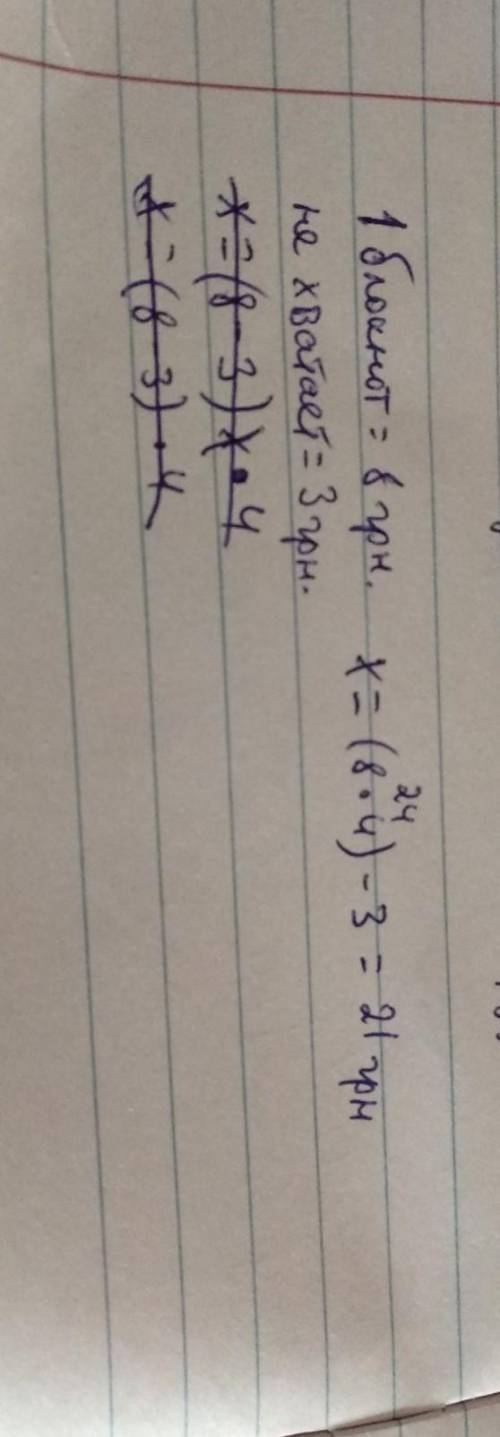 1 блокнот = 8 грн. x = (8 · 4) - 3 = 21 грн
24
не хватает = 3 грн.
x = (8 - 3) x · 4
x = (8 - 3) · 4